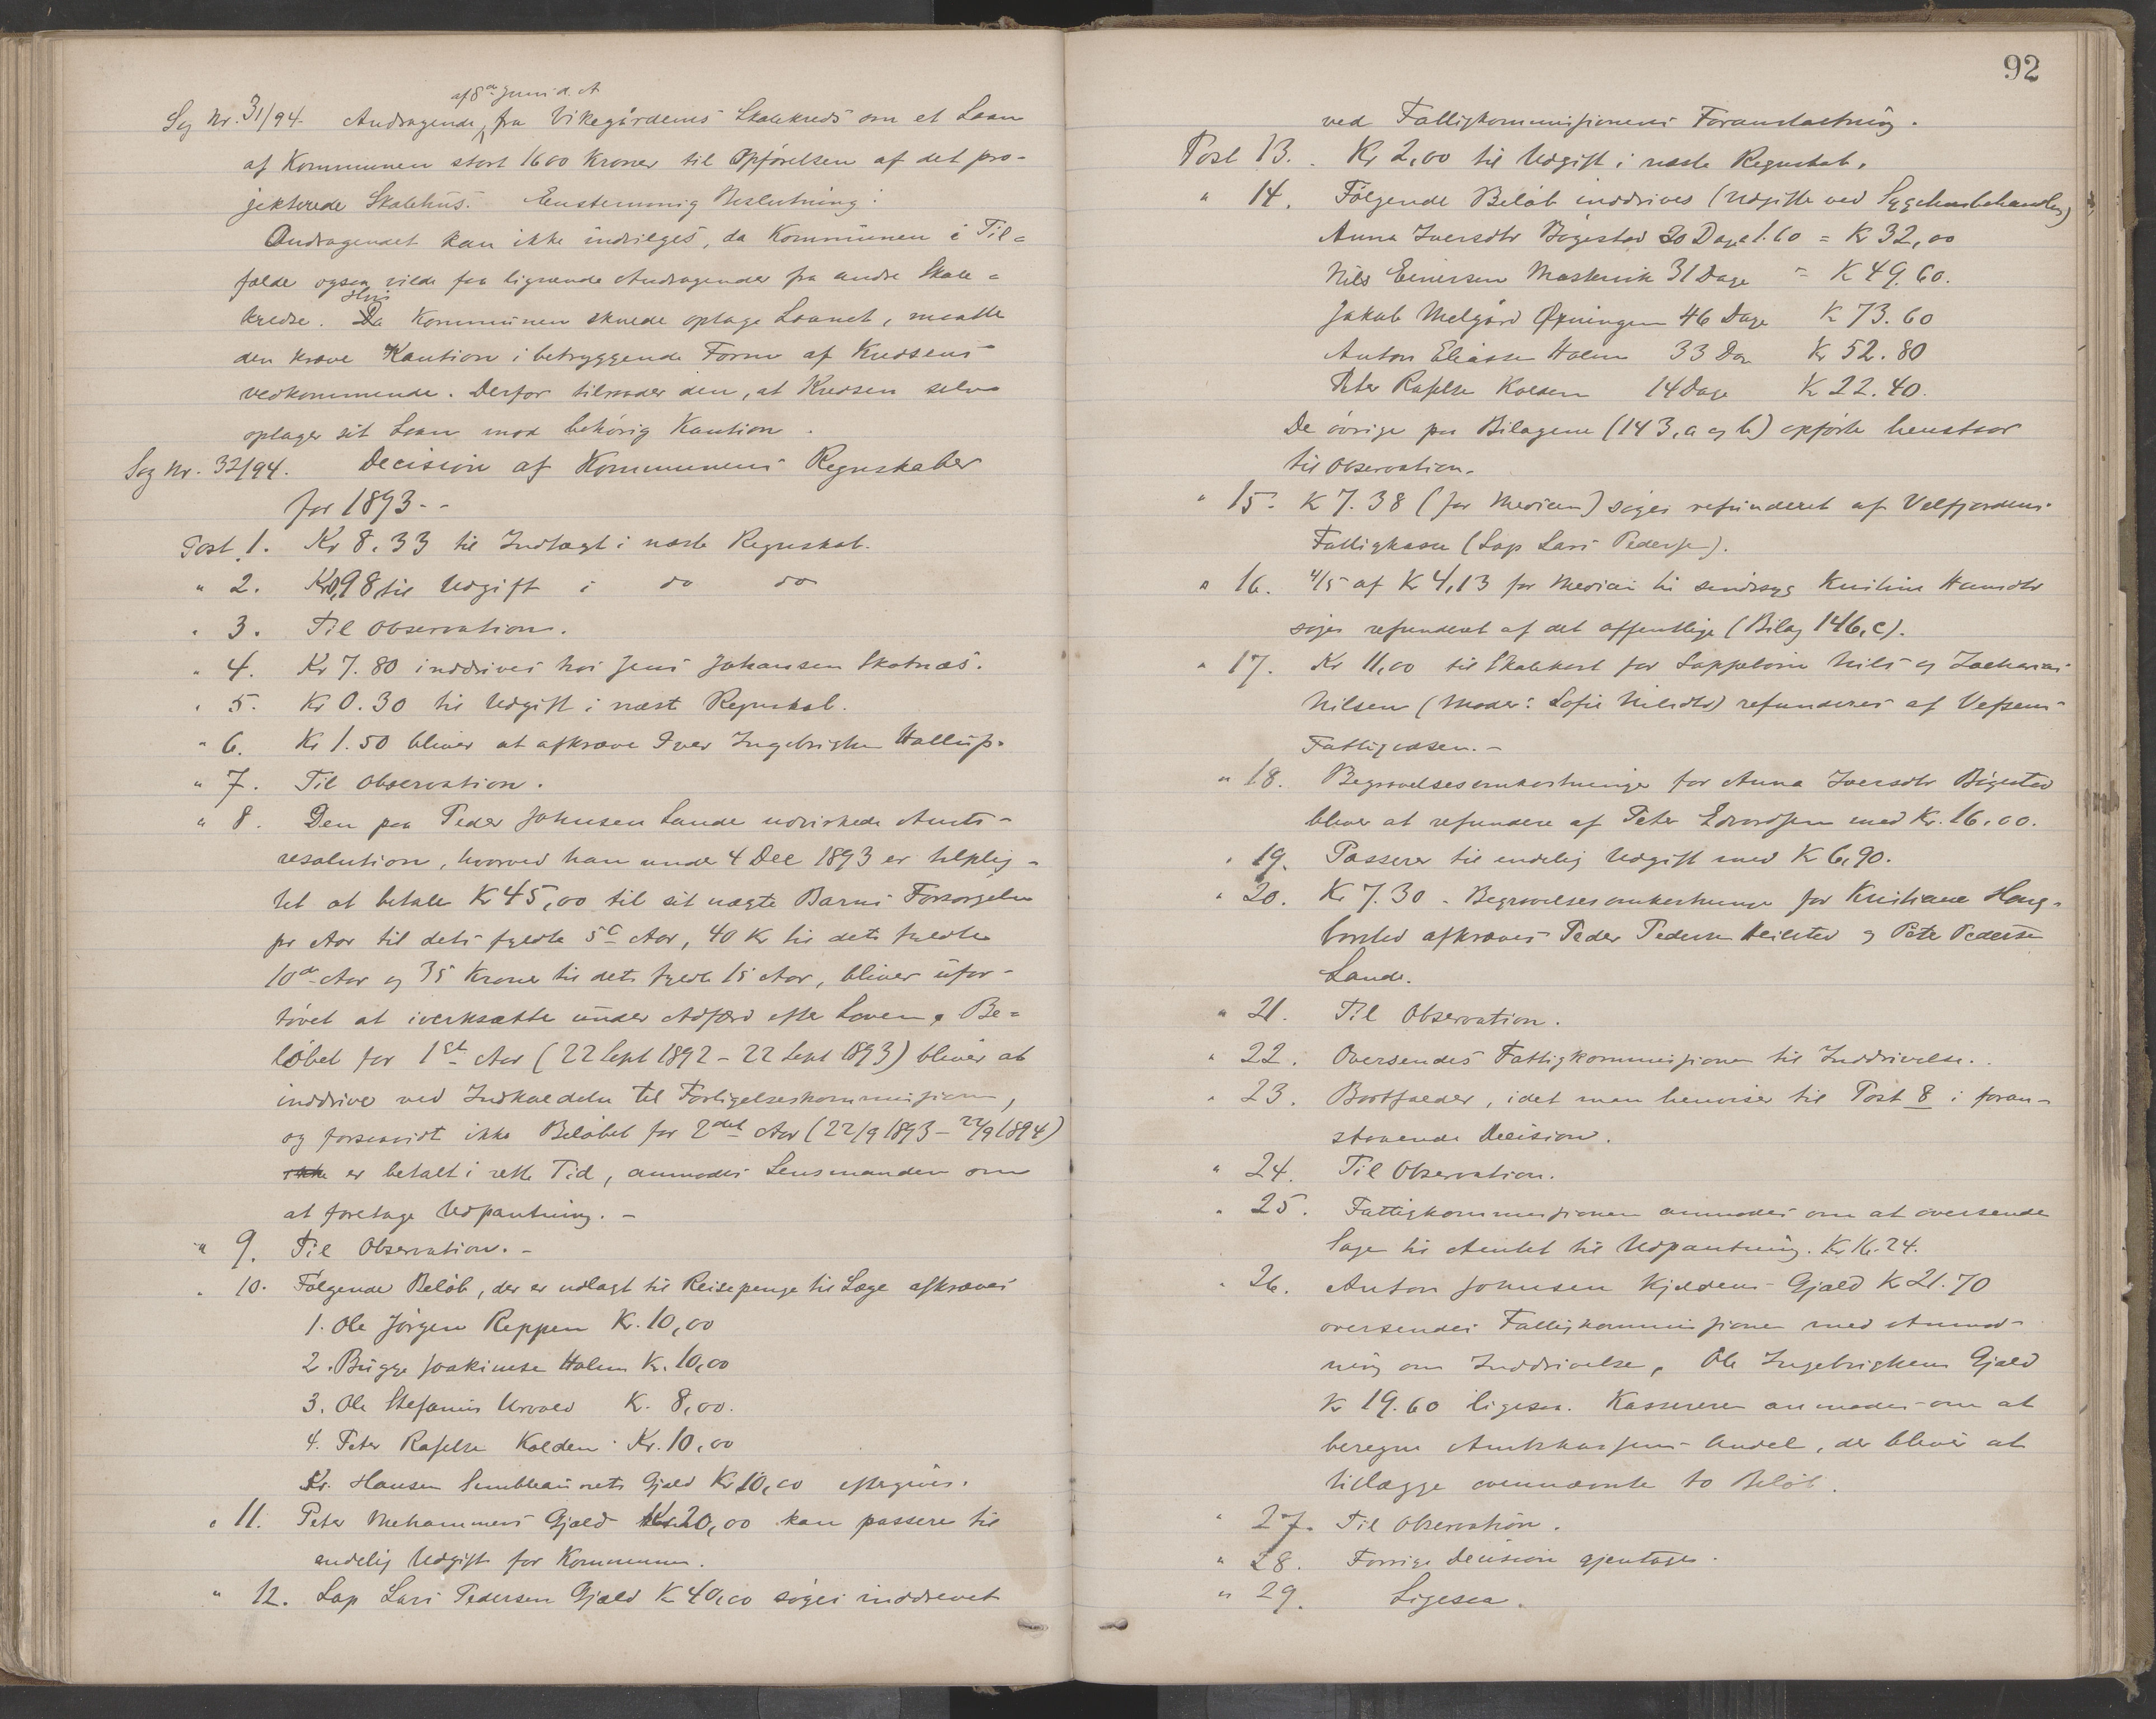 af 8de Juni d. A
Sag Nr. 31/94. Andragende fra Vikegårdens Skolekreds om et Laan
af Kommunen stort 1600 Kroner til Opførelsen af det pro-
jekterede Skolehus. Enstemmig Beslutning:
Andragendet kan ikke indvilges, da Kommunen i Til-
fælde ogsaa vilde faa lignende Andragender fra andre Skole-
kredse. Hvis Kommunen skulde optage Laanet, maatte
den kræve Kaution i betryggende Form af Kredsens
vedkommende. Derfor tilraader den, at Kredsen selv
optager sit Laan mod behørig Kaution.
Sag Nr. 32/94. Decision af Kommunens Regnskaber
for 1893.-
Post 1. Kr 8,33 til Indtægt i næste Regnskab.
" 2. Kr 0,98 til Udgift i do do
" 3. Til Observation.
" 4. Kr 7.80 inddrives hos Jens Johansen Skotnæs.
" 5. Kr 0.30 til Udgift i næst Regnskab.
" 6. Kr 1.50 bliver at afkræve Iver Ingebrigtsen
" 7. Til Observation.
" 8. Den paa Peder Johnsen Lande udvirkede Amts-
resolution, hvorved han under 4 Dec 1893 er tilplig-
tet at betale Kr 45,00 til sit uægte Barns Forsørgelse
pr Aar til dets fyldte 5te Aar, 40 Kr til dets fyldte
10de Aar og 35 Kroner til dets fyldte 15 Aar, bliver ufor-
tøvet at iverksætte under Adfærd efter Loven. Be-
løbet for 1ste Aar (22 Sept 1892 - 22 Sept 1893) bliver at
inddrive ved Indkaldelse til Forligelseskommissionen,
og forsaavidt ikke Beløbet for 2det Aar (22/9 1893 - 22/9 1894)
er betalt i rette Tid, anmodes Lensmanden om
at foretage Udpantning. -
" 9. Til Observation. -
" 10. Følgende Beløb, der er udlagt til Reisepenge til Læge afkræves
1. Ole Jørgen Reppen Kr. 10,00
2. Brygge Joakimsen Holm Kr. 10,00
3. Ole Stefanus Urvold Kr. 8,00.
4. Peter Rafelsen Kolden Kr. 10,00
Kr. Hansen Gjæld Kr 10,00 eftergives.
" 11. Peter Mehammers Gjæld Kr 20,00 kan passere til
endelig Udgift for Kommunen.
" 12. Lap Lars Pedersen Gjæld Kr 40,00 søges inddrevet
92
ved Fattigkommissionens Foranstaltning.
Post 13. Kr 2,00 til Udgift i næste Regnskab.
" 14. Følgende Beløb inddrives (Udgifte ved Sygehusbehandling)
Anna Iversdtr Bøgestad 20 Dage 1.60 = Kr 32,00
Nils Einersen 31 Dage = Kr 49.60.
Jakob Melgård Øxningen 46 Dage Kr 73.60
Anton Eliassen Holm 33 Dar Kr 52.80
Peter Rafelsen Kolden 14 Dage Kr 22.40.
De øvrige paa Bilagene (143, a og b) opførte henstaar
til Observation.
" 15. Kr 7.38 (for Medicin) søges refunderet af Velfjordens
Fattigkasse (Lap Lars Pedersen).
" 16. 4/5 af Kr 4,13 for Medicin til sindssyg Kristine Hansdtr
søges refunderet af det offentlige (Bilag 146, c).
" 17. Kr 11,00 til Skolekost for Lappebørn Nils og Zacharias
Nilsen (Moder: Sofie Nilsdtr) refunderes af Vefsens
Fattigvæsen. -
" 18. Begravelsesomkostninger for Anna Iversdtr Bøgestad
bliver at refundere af Peter Edvardsen med Kr. 16,00.
" 19. Passerer til endelig Udgift med Kr 6,90.
" 20. Kr 7.30 - Begravelsesomkostninger for Kristiane Hong-
barsted afkræves Peder Pedersen Heilstad og Peter Pedersen
Lande.
" 21. Til Observation.
" 22. Oversendes Fattigkommissionen til Inddrivelse.
" 23. Bortfalder, idet man henviser til Post 8 i foran-
staaende Decision.
" 24. Til Observation.
" 25. Fattigkommissionen anmodes om at oversende
Sagen til Amtet til Udpantning. Kr 16.24.
" 26. Anton Johnsen Kjeldens Gjæld Kr 21.70
oversendes Fattigkommissionen med Anmod-
ning om Inddrivelse, Ole Ingebrigtsens Gjæld
Kr 19.60 ligesaa. Kassereren anmodes om at
beregne Amtskassens Andel, der bliver at
tillægge ovennævnte to Beløb.
" 27. Til Observation.
" 28. Forrige Decision gjentages.
" 29. Ligesaa.